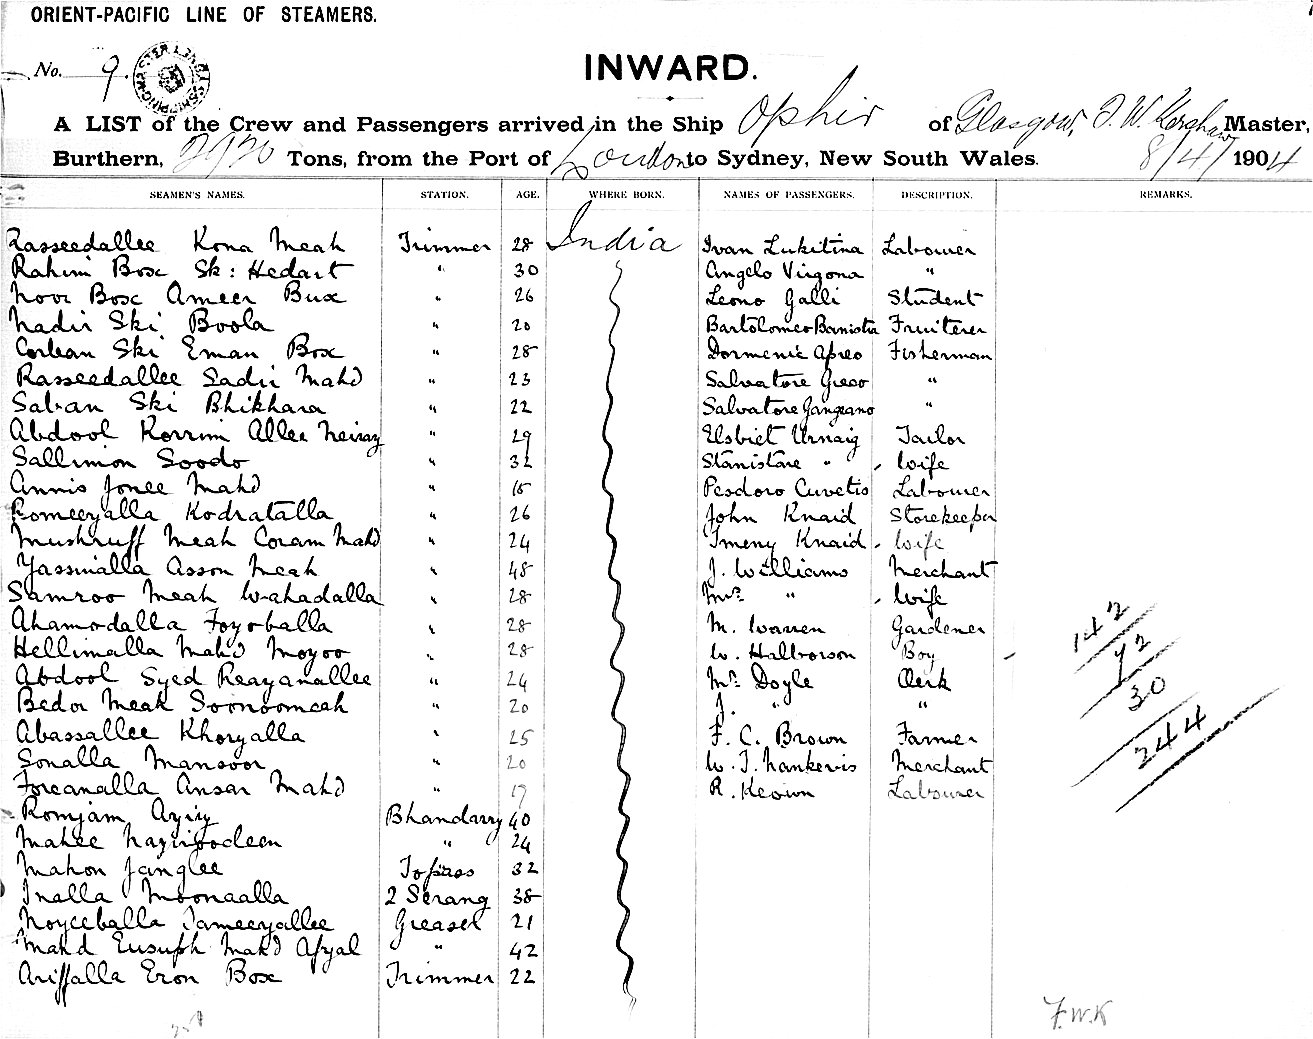 ORIENT-PACIFIC LINE OF STEAMERS.
No. 9.
INWARD.
A LIST of the Crew and Passengers arrived in the Ship Ophir of Glasgow, F. W. Kershaw Master,
Burthern, 2920 Tons, from the Port of London to Sydney, New South Wales. 8/4/1904
SEAMEN'S NAMES. STATION. AGE. WHERE BORN. NAMES OF PASSENGERS. DESCRIPTION. REMARKS.
Rasseedallee Kona Meah Trimmer 28 India Ivan Lukitina Labourer
Rahim Box Sk: Hedart " 30 Angelo Virgona "
Noor Box Ameer Bux " 26 Leono Galli Student
Nadir Ski Boola " 20 Bartolomeo Banista Fruiterer
Corban Ski Eman Box " 28 Dormenic Apreo Fisherman
Rasseedallee Sadir Mahd " 23 Salvatore Greco "
Saban Ski Bhikhara " 22 Salvatore Gangeano "
Abdool Korrim Allee Neiray " 29 Elsbiet Urnaig Tailor
Sallimon Soodo " 32 Stanistare " Wife
Annis Jonee Mahd " 18 Pesdoro Cuvetis Labourer
Romeeyalla Kodratalla " 26 John Knaid Storekeeper
Mushruff Meah Coram Mahd " 24 Imeny Knaid Wife
Yassinalla Asson Meah " 48 J. Williams Merchant
Samroo Meah Wahadalla " 28 Mrs " Wife
Ahamodalla Foyoballa " 28 M. Warren Gardener
Hellimalla Mahd Moyoo " 28 W. Halborson Boy
Abdool Syed Reayanallee " 24 Mr. Doyle Clerk
Bedor Meah Soonoomeah " 20 J. " "
Abassallee Khoryalla " 25 F. C. Brown Farmer
Sonalla Mansoor " 20 W. T. Nankervis Merchant
Foreanalla Ansar Mahd " 19 R. Keown Labourer
Romjam Aziz Bhandarry 40
Mahee Naziroodeen " 24
Mahon Janglee Topass 32
Inalla Moonaalla 2 Serang 38
Noyceballa Jameeyallee Greaser 21
Mahd Eusuph Mahd Afzal " 42
Ariffalla Eron Box Trimmer 22
142
72
30
244
F.W.K